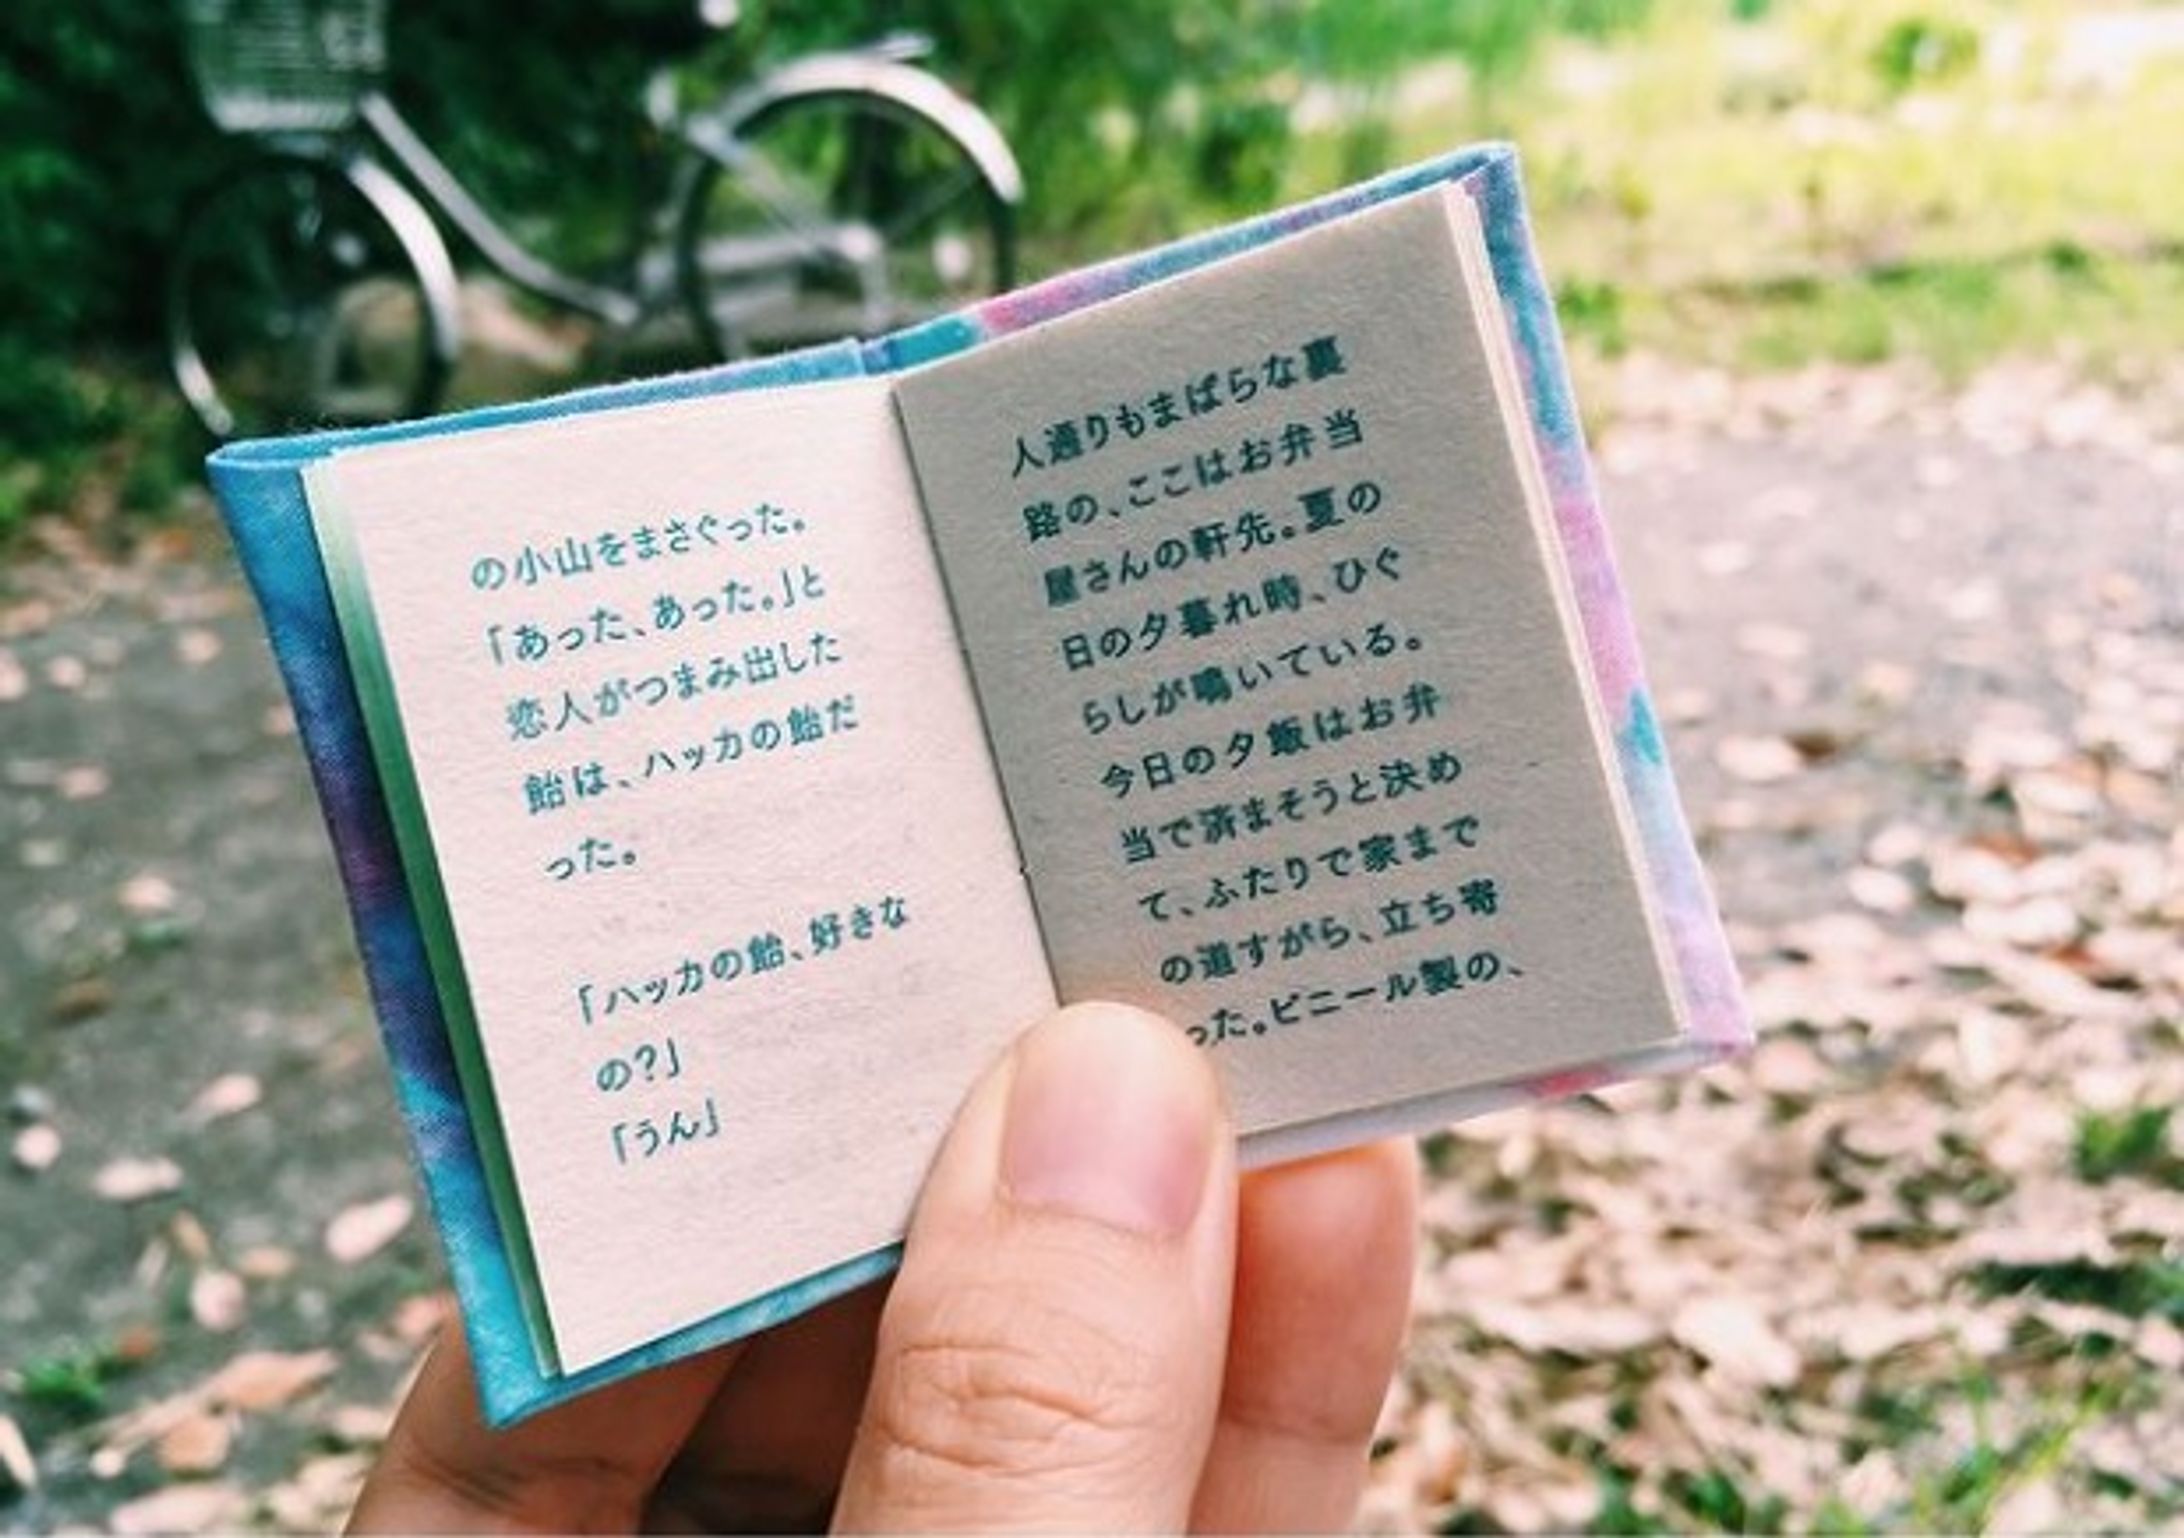 の小山をまさぐった。
「あった、あった。」と
恋人がつまみ出した
飴は、ハッカの飴だ
った。
「ハッカの飴、好きな
の?」
「うん」
人通りもまばらな裏
路の、ここはお弁当
屋さんの軒先。夏の
日の夕暮れ時、ひぐ
らしが鳴いている。
今日の夕飯はお弁
当で済まそうと決め
て、ふたりで家まで
の道すがら、立ち寄
った。ビニール製の、